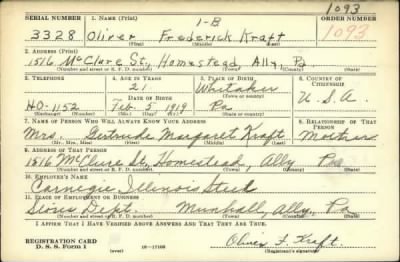 1-B
1093
SERIAL NUMBER 1. NAME (Print) ORDER NUMBER
3328 Oliver Frederick Kraft 1093
(First) (Middle) (Last)
2. ADDRESS (Print)
1516 McClure St., Homestead Ally. Pa.
(Number and street or R. F. D. number) (Town) (County) (State)
3. TELEPHONE 4. AGE IN YEARS 5. PLACE OF BIRTH 6. COUNTRY OF CITIZENSHIP
21 Whitaker
DATE OF BIRTH (Town or county)
HO-1152 Feb. 5, 1919 Pa U.S.A.
(Exchange) (Number) (Mo.) (Day) (Yr.) (State or country)
7. NAME OF PERSON WHO WILL ALWAYS KNOW YOUR ADDRESS 8. RELATIONSHIP OF THAT PERSON
Mrs. Gertrude Margaret Kraft Mother
(Mr., Mrs., Miss) (First) (Middle) (Last)
9. ADDRESS OF THAT PERSON
1516 McClure St., Homestead, Ally Pa
(Number and street or R. F. D. number) (Town) (County) (State)
10. EMPLOYER'S NAME
Carnegie Illinois Steel
11. PLACE OF EMPLOYMENT OR BUSINESS
Stores Dept. Munhall, Ally., Pa
(Number and street or R. F. D. number) (Town) (County) (State)
I AFFIRM THAT I HAVE VERIFIED ABOVE ANSWERS AND THAT THEY ARE TRUE.
REGISTRATION CARD
D. S. S. Form 1 (over) 16-17105 Oliver F. Kraft.
(Registrant's signature)